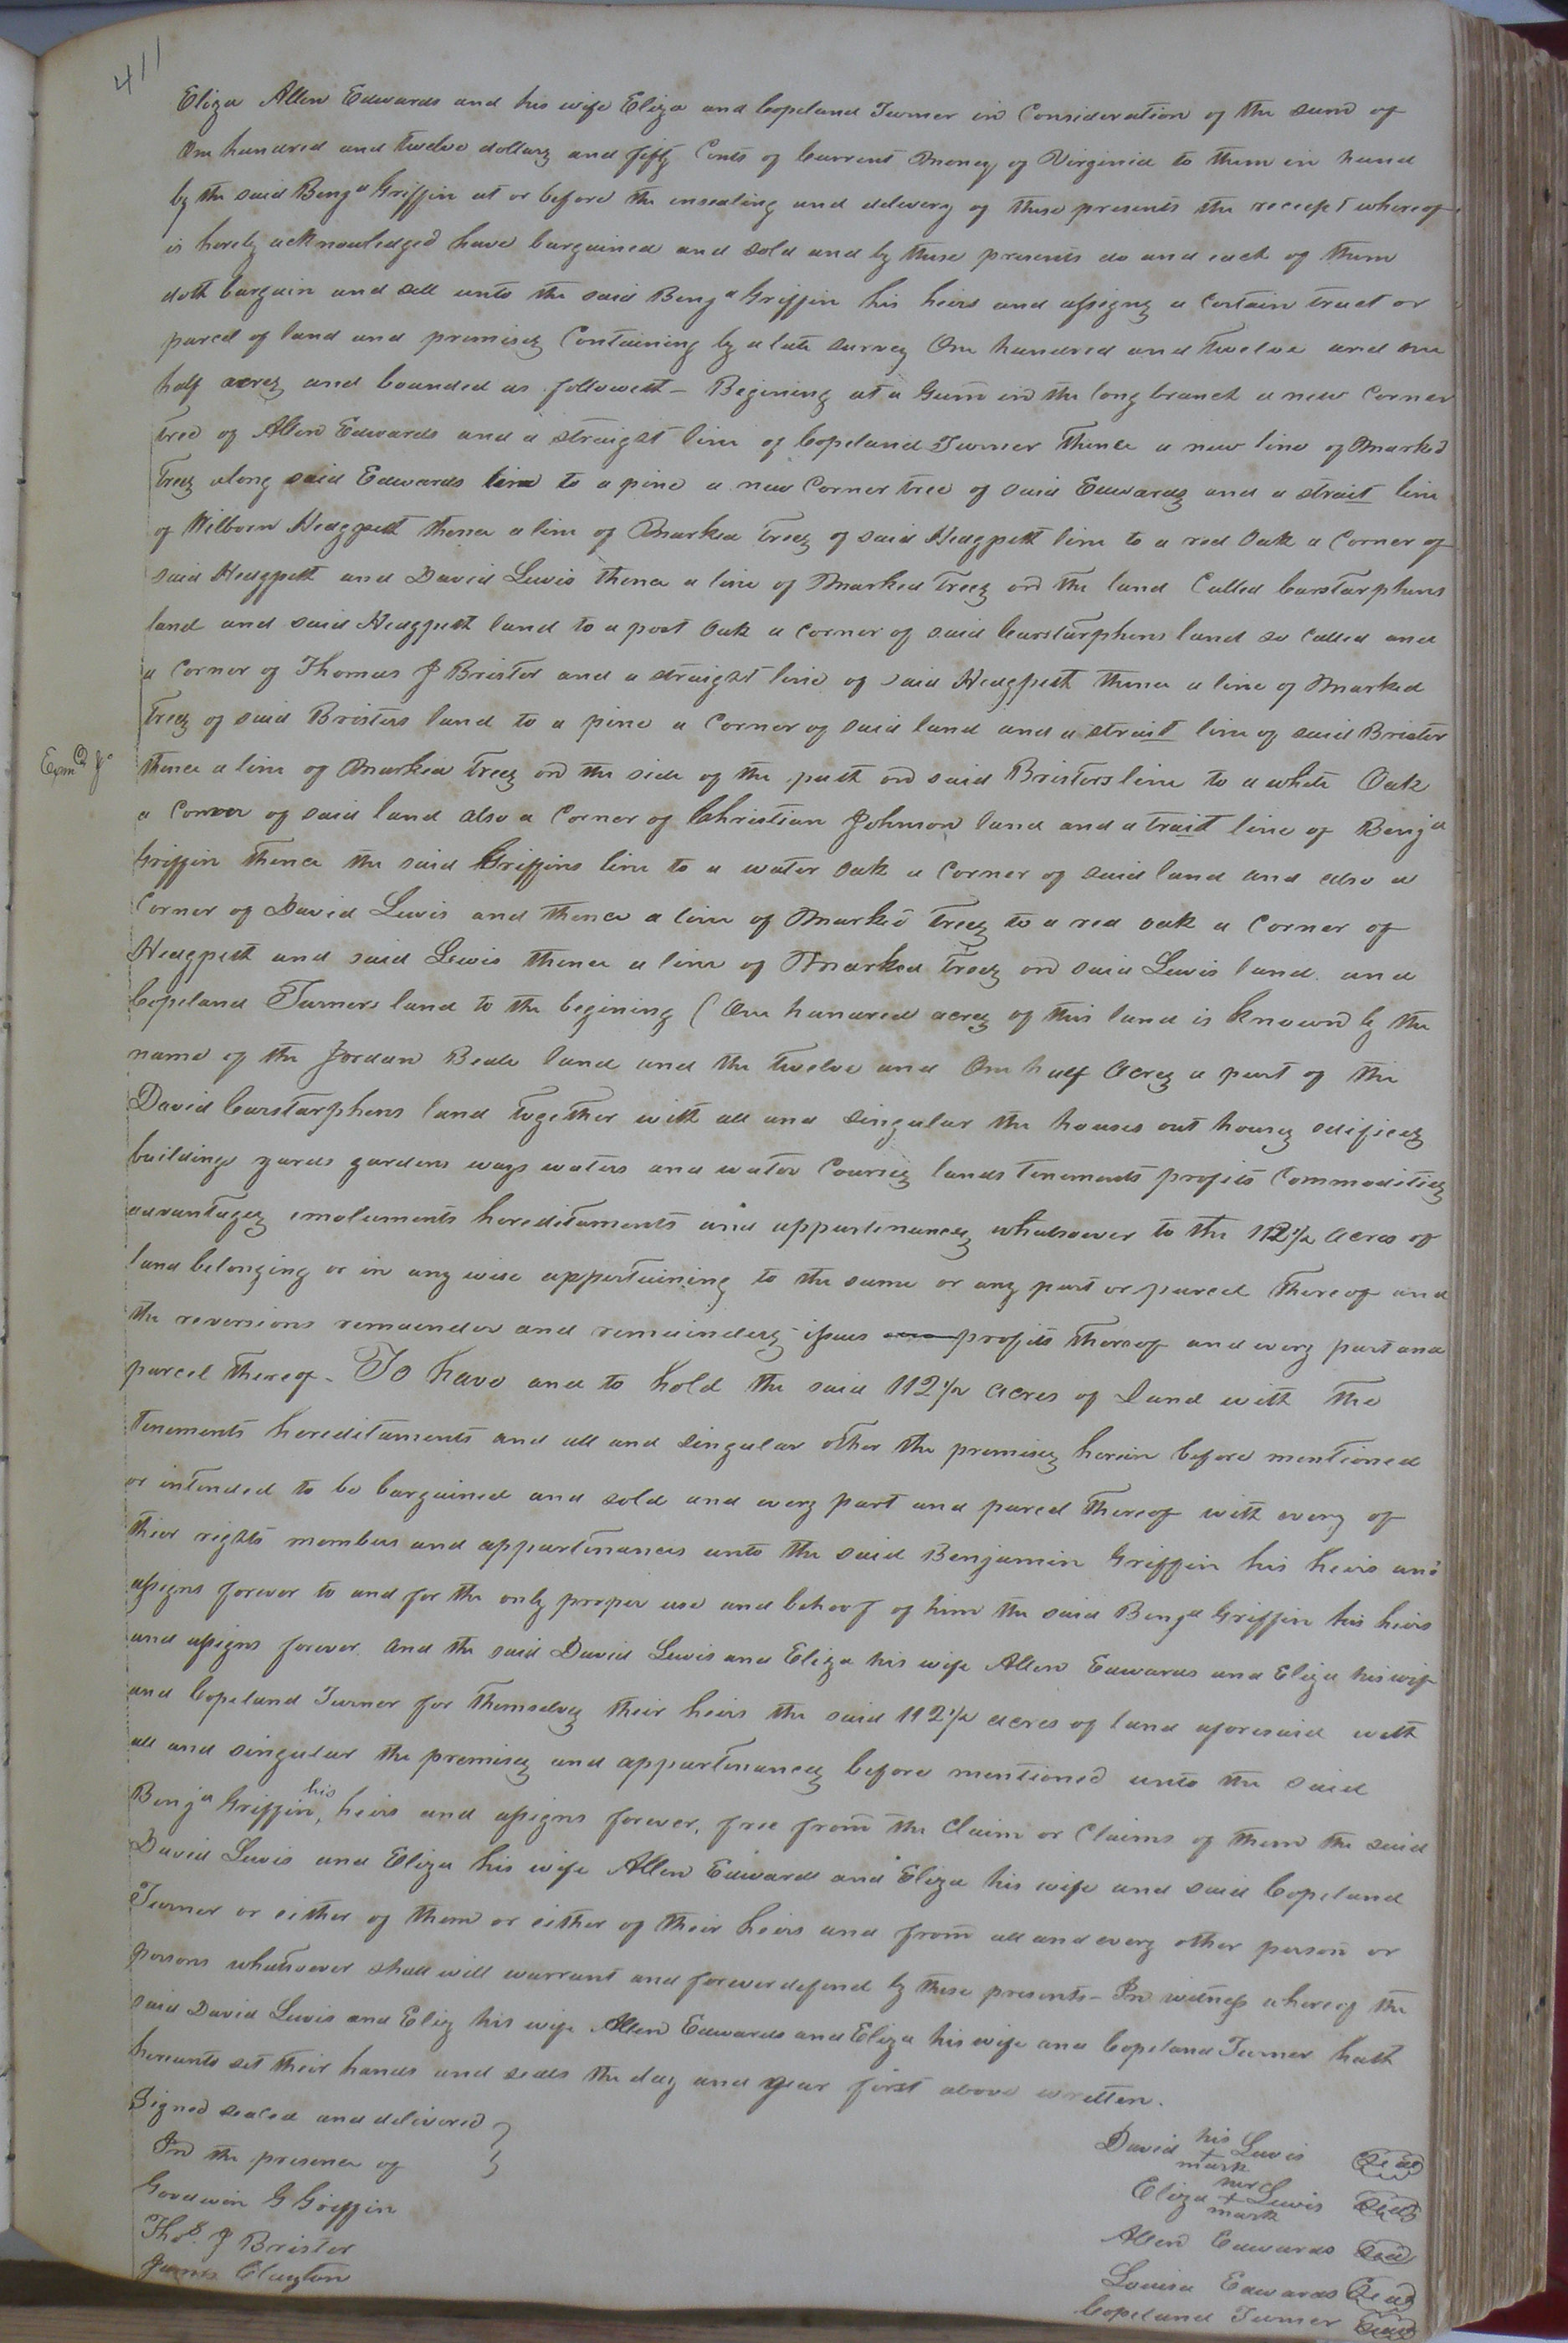 411
Eliza Allen Edwards and his wife Eliza and Copeland Turner in Consideration of the sum of
One hundred and twelve dollars and fifty Cents of Current Money of Virginia to them in hand
by the said Benja Griffin at or before the ensealing and delivery of these presents the receipt whereof
is hereby acknowledged have bargained and sold and by these presents do and each of them
doth bargain and sell unto the said Benja Griffin his heirs and assigns a Certain tract or
parcel of land and premises Containing by a late survey One hundred and Twelve and one
half acres and bounded as followeth - Begining at a Gum in the long branch a new Corner
tree of Allen Edwards and a straight line of Copeland Turner Thence a new line of Marked
Trees along said Edwards line to a pine a new Corner tree of said Edwards and a strait line
of Wilborn Hedgpeth thence a line of Marked Trees of said Hedgpeth line to a red Oak a Corner of
said Hedgpeth and David Lewis thence a line of Marked Trees on the land Called Carstarphens
land and said Hedgpeth land to a post Oak a corner of said Carstarphens land so called and
a Corner of Thomas J Brister and a straight line of said Hedgpeth thence a line of Marked
Trees of said Bristers land to a pine a Corner of said land and a strait line of said Brister
Exmd Jo
thence a line of Marked Trees on the side of the path on said Bristers line to a white Oak
a Corner of said land also a Corner of Christian Johnson land and a trait line of Benja
Griffin Thence the said Griffins line to a water Oak a Corner of said land and also a
Corner of David Lewis and thence a line of Marked Trees to a red oak a Corner of
Hedgpeth and said Lewis thence a line of Marked Trees on said Lewis land and
Copeland Turners land to the begining ( One hundred acres of this land is known by the
name of the Jordan Beale land and the Twelve and One half Acres a part of the
David Carstarphens land together with all and singular the houses out houses edifices
buildings yards gardens ways waters and water Courses lands tenements profits Commodities
advantages emoluments hereditaments and appurtenances whatsoever to the 112½ acres of
land belonging or in any wise appertaining to the same or any part or parcel Thereof and
the reversions remainder and remainders issues and profits thereof and every part and
parcel thereof - To have and to hold the said 112½ acres of Land with the
Tenements hereditaments and all and singular other the premises herein before mentioned
or intended to be bargained and sold and every part and parcel Thereof with every of
their rights members and appurtenances unto the said Benjamin Griffin his heirs and
assigns forever to and for the only proper use and behoof of him the said Benja Griffin his heirs
and assigns forever. And the said David Lewis and Eliza his wife Allen Edwards and Eliza his wife
and Copeland Turner for Themselves their heirs the said 112½ acres of land aforesaid with
all and singular the premises and appurtenances before mentioned unto the said
Benja Griffin, his heirs and assigns forever, free from the Claim or Claims of them the said
David Lewis and Eliza his wife Allen Edwards and Eliza his wife and said Copeland
Turner or either of them or either of their heirs and from all and every other person or
persons whatsoever shall will warrant and forever defend by these presents - In witness whereof the
said David Lewis and Eliz his wife Allen Edwards and Eliza his wife and Copeland Turner hath
hereunto set their hands and seals the day and year first above written.
Signed sealed and delivered }
In the presence of
Goodwin G Griffin
Thos. J Brister
James Clayton
David his + mark Lewis Seal
Eliza her + mark Lewis Seal
Allen Edwards Seal
Louisa Edwards Seal
Copeland Turner Seal